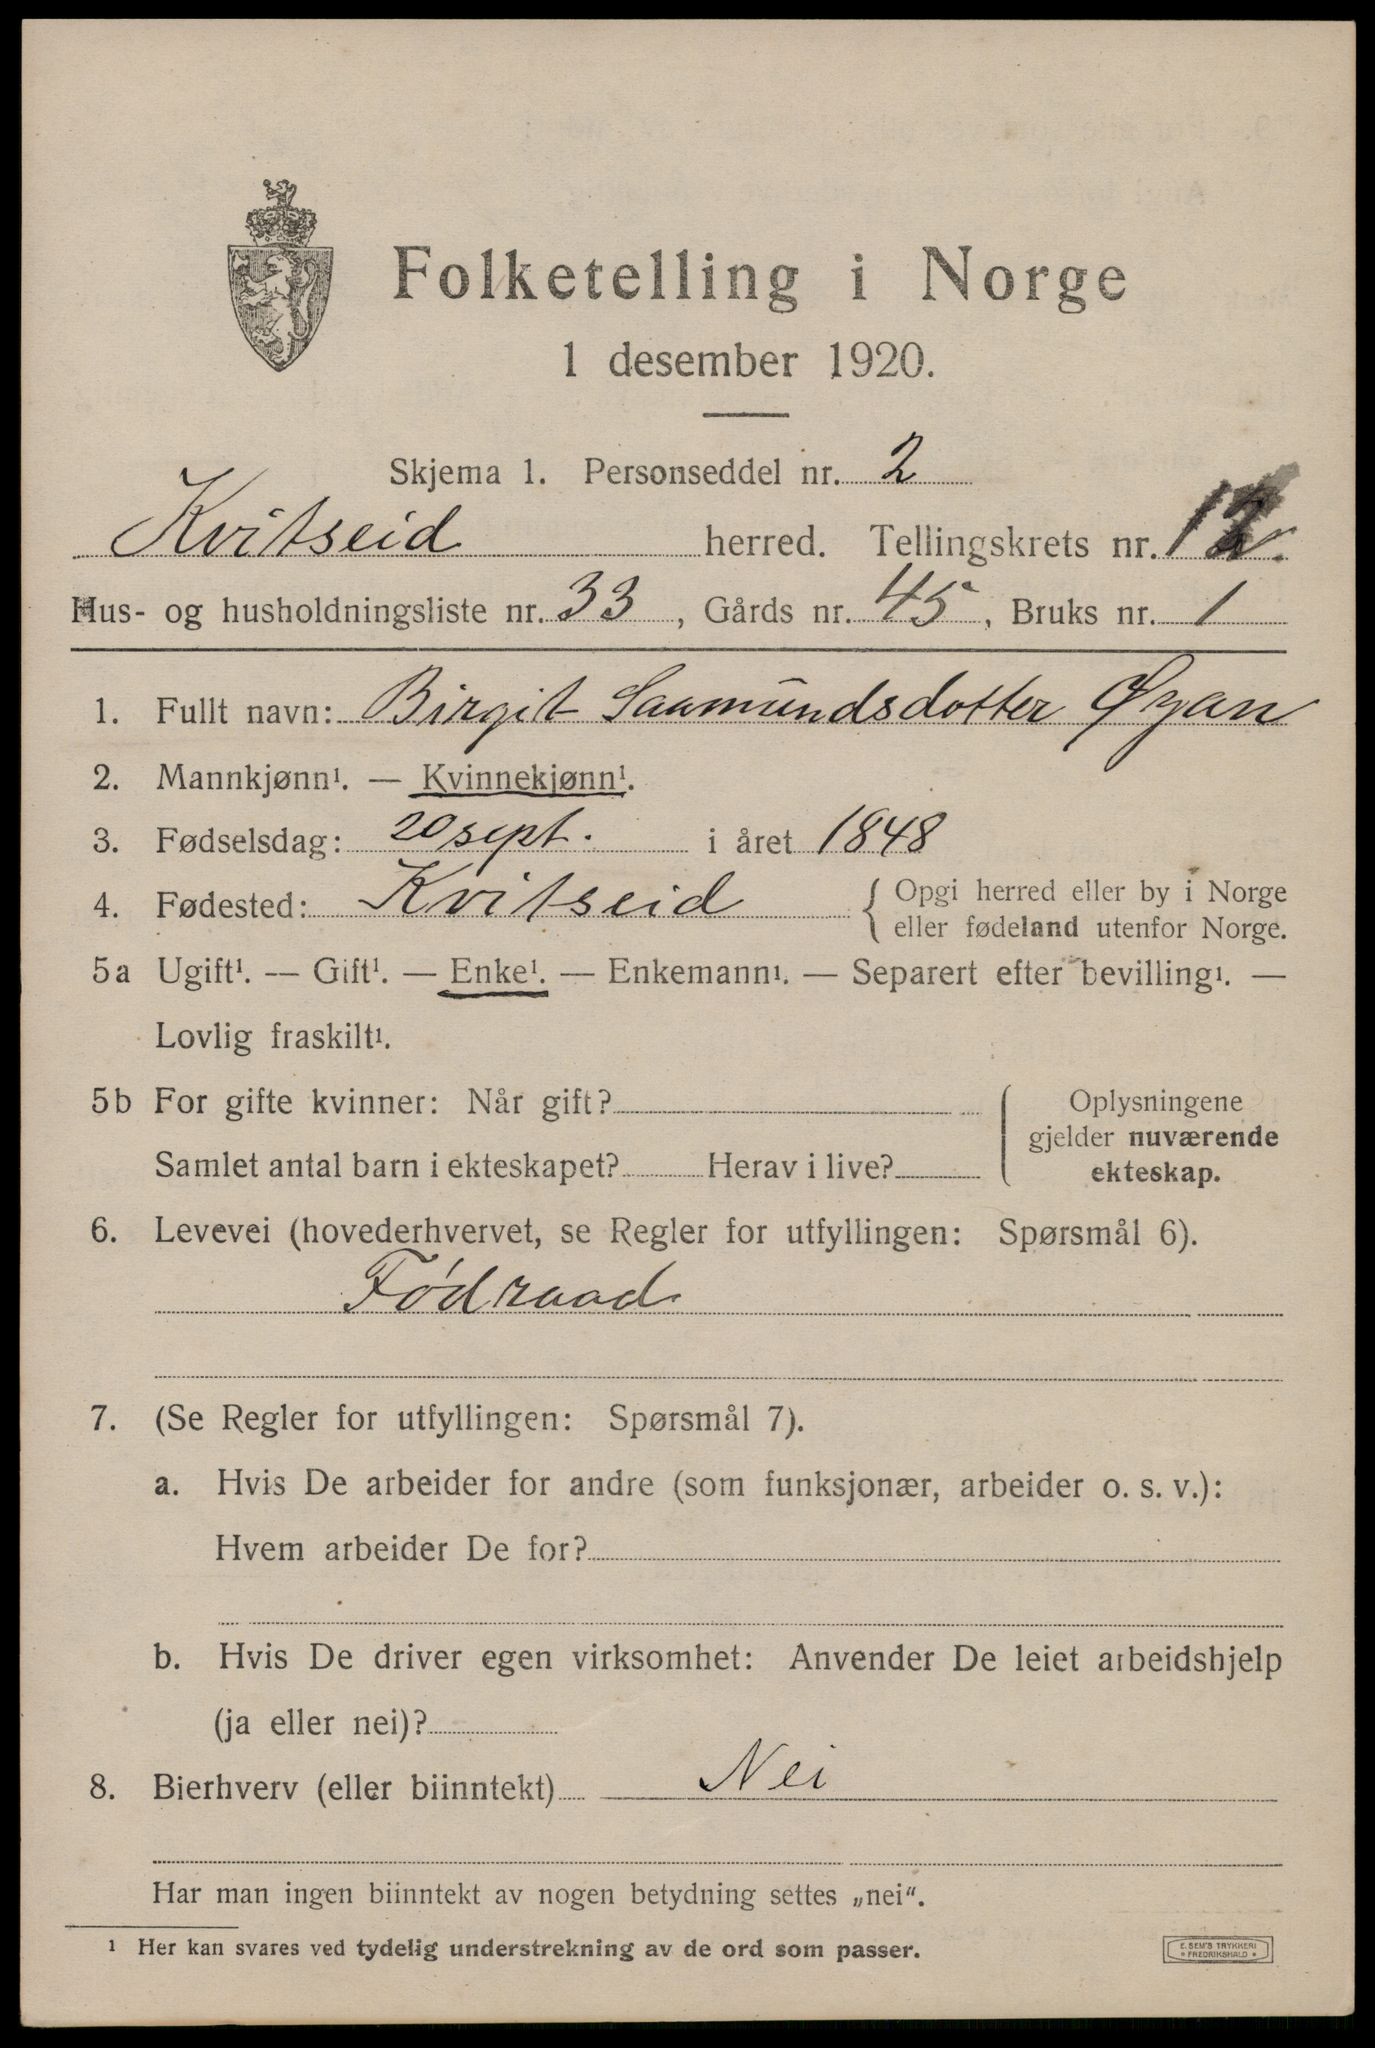 Folketelling i Norge
1 desember 1920.
Skjema 1. Personseddel nr. 2
Kvitseid herred. Tellingskrets nr. 12.
Hus- og husholdningsliste nr. 33, Gårds nr. 45, Bruks nr. 1
1. Fullt navn: Birgit Saamundsdotter Øyan
2. Mannkjønn¹. — Kvinnekjønn¹.
3. Fødselsdag: 20 sept. i året 1848
4. Fødested: Kvitseid { Opgi herred eller by i Norge
eller fødeland utenfor Norge.
5a Ugift¹. — Gift¹. — Enke¹. — Enkemann¹. — Separert efter bevilling¹. —
Lovlig fraskilt¹.
5b For gifte kvinner: Når gift?
Samlet antal barn i ekteskapet? Herav i live?
Oplysningene
gjelder nuværende
ekteskap.
6. Levevei (hovederhvervet, se Regler for utfyllingen: Spørsmål 6).
Fødraad
7. (Se Regler for utfyllingen: Spørsmål 7).
a. Hvis De arbeider for andre (som funksjonær, arbeider o. s. v.):
Hvem arbeider De for?
b. Hvis De driver egen virksomhet: Anvender De leiet arbeidshjelp
(ja eller nei)?
8. Bierhverv (eller biinntekt) Nei
Har man ingen biinntekt av nogen betydning settes „nei“.
¹ Her kan svares ved tydelig understrekning av de ord som passer.
E. SEM'S TRYKKERI
* FREDRIKSHALD *